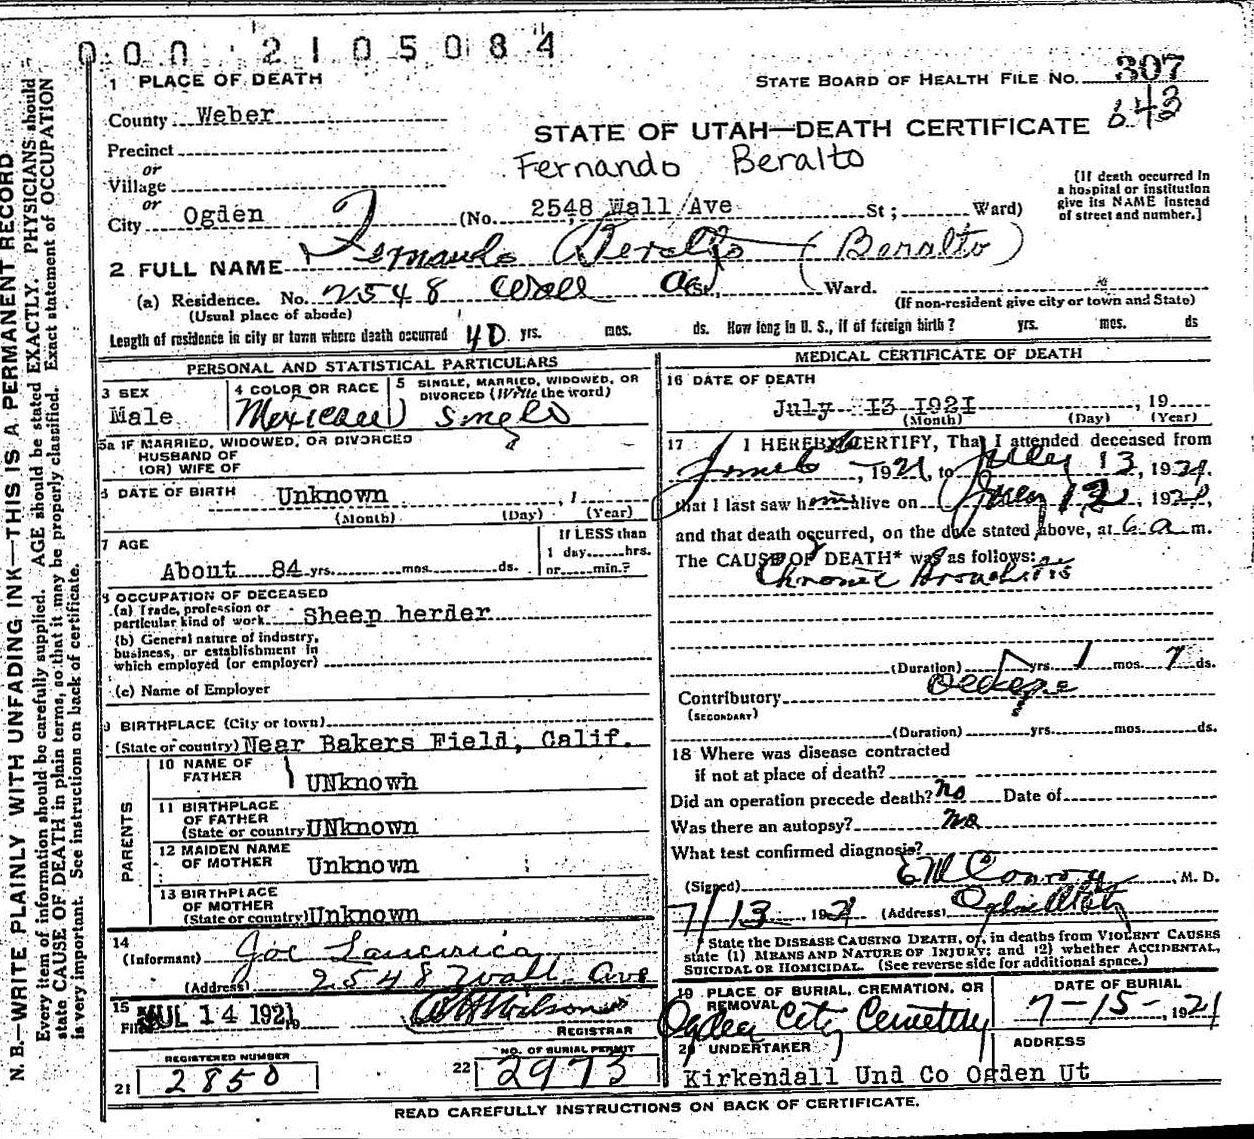 000 2105084
1 PLACE OF DEATH
STATE BOARD OF HEALTH FILE NO. 307
County Weber
643
STATE OF UTAH—DEATH CERTIFICATE
Precinct
Fernando Beralto
or
Village
or
City Ogden (No. 2548 Wall Ave St; Ward)
[If death occurred in
a hospital or institution
give its NAME instead
of street and number.]
2 FULL NAME Fernando Beralto (Beralto)
(a) Residence. No. 2548 Wall Ave St., Ward.
(Usual place of abode)
(If non-resident give city or town and State)
Length of residence in city or town where death occurred 40 yrs. mos. ds. How long in U. S., if of foreign birth? yrs. mos. ds
PERSONAL AND STATISTICAL PARTICULARS
3 SEX
Male
4 COLOR OR RACE
Mexican
5 SINGLE, MARRIED, WIDOWED, OR
DIVORCED (Write the word)
Single
5a IF MARRIED, WIDOWED, OR DIVORCED
HUSBAND OF
(OR) WIFE OF
6 DATE OF BIRTH Unknown , 1
(Month) (Day) (Year)
7 AGE
About 84 yrs. mos. ds.
If LESS than
1 day hrs.
or min.?
8 OCCUPATION OF DECEASED
(a) Trade, profession or
particular kind of work Sheep herder
(b) General nature of industry,
business, or establishment in
which employed (or employer)
(c) Name of Employer
9 BIRTHPLACE (City or town)
(State or country) Near Bakers Field, Calif.
PARENTS
10 NAME OF
FATHER UNknown
11 BIRTHPLACE
OF FATHER
(State or country UNknown
12 MAIDEN NAME
OF MOTHER Unknown
13 BIRTHPLACE
OF MOTHER
(State or country) Unknown
14
(Informant) Joe
(Address) 2548 Wall Ave
15
Filed JUL 14 1921 19
REGISTRAR
REGISTERED NUMBER
21 2850
NO. OF BURIAL PERMIT
22 2973
MEDICAL CERTIFICATE OF DEATH
16 DATE OF DEATH
July 13 1921 , 19
(Month) (Day) (Year)
17 I HEREBY CERTIFY, That I attended deceased from
June 6, 1921, to July 13, 1921.
that I last saw him alive on July 12, 1921,
and that death occurred, on the date stated above, at 6 a m.
The CAUSE OF DEATH* was as follows:
Chronic Bronchitis
(Duration) yrs. 1 mos. 7 ds.
Contributory Old age
(SECONDARY)
(Duration) yrs. mos. ds.
18 Where was disease contracted
if not at place of death?
Did an operation precede death? no Date of
Was there an autopsy? no
What test confirmed diagnosis?
(Signed) E M Conroy, M. D.
7/13 1921 (Address) Ogden Utah
State the DISEASE CAUSING DEATH, or, in deaths from VIOLENT CAUSES
state (1) MEANS AND NATURE OF INJURY; and (2) whether ACCIDENTAL,
SUICIDAL OR HOMICIDAL. (See reverse side for additional space.)
19 PLACE OF BURIAL, CREMATION, OR
REMOVAL
Ogden City Cemetery
DATE OF BURIAL
7-15-, 1921
20 UNDERTAKER
ADDRESS
Kirkendall Und Co Ogden Ut
READ CAREFULLY INSTRUCTIONS ON BACK OF CERTIFICATE.
N. B.—WRITE PLAINLY WITH UNFADING INK—THIS IS A PERMANENT RECORD
Every item of information should be carefully supplied. AGE should be stated EXACTLY. PHYSICIANS should
state CAUSE OF DEATH in plain terms, so that it may be properly classified. Exact statement of OCCUPATION
is very important. See instructions on back of certificate.